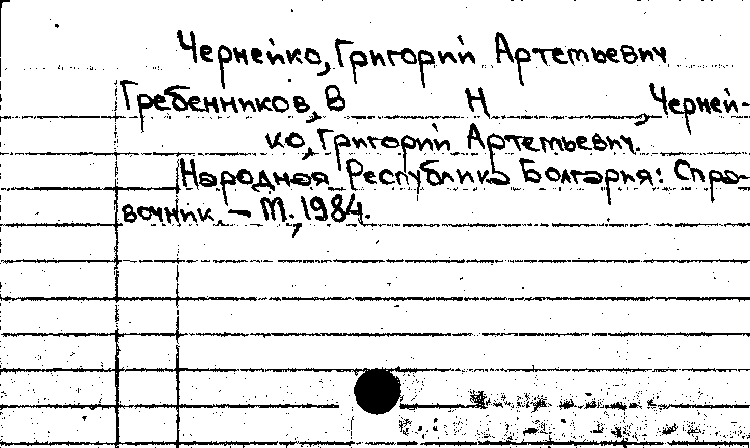 Чернейко, Григорий Артемьевич
Гребенников, В Н , Черней-
ко, Григорий Артемьевич.
Народная Республика Болгария: Спра-
вочник. – М., 1984.